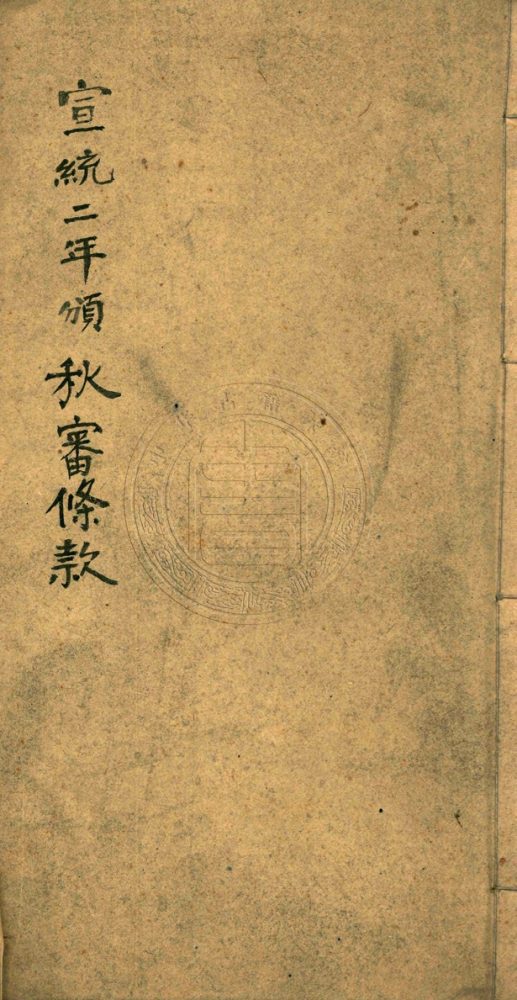 宣統二年頒秋審條款